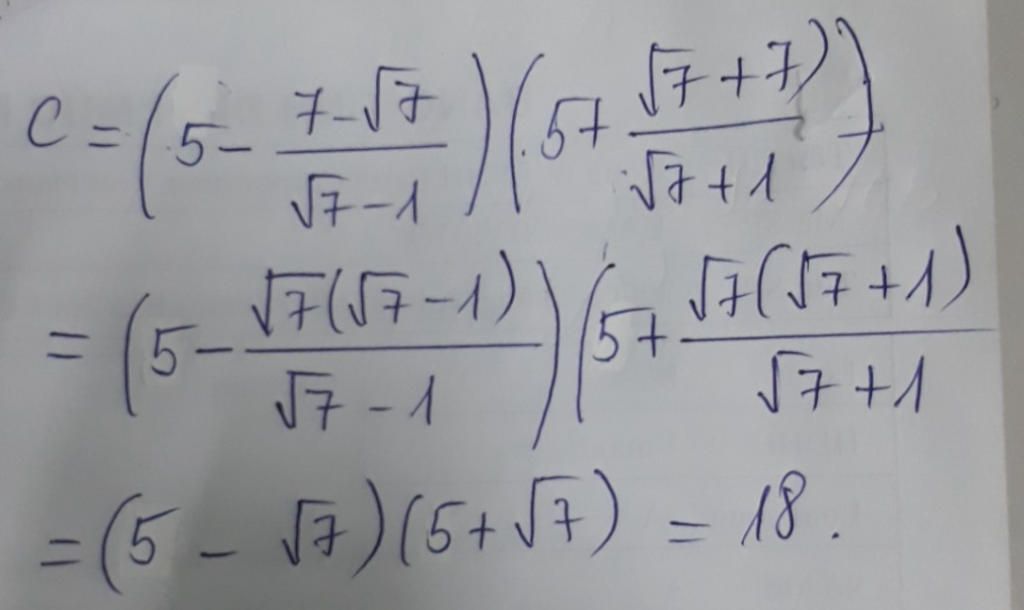 C = (5 - \frac{7-\sqrt{7}}{\sqrt{7}-1})(5+\frac{\sqrt{7}+7)}{\sqrt{7}+1})
= (5 - \frac{\sqrt{7}(\sqrt{7}-1)}{\sqrt{7}-1})(5+\frac{\sqrt{7}(\sqrt{7}+1)}{\sqrt{7}+1})
= (5 - \sqrt{7})(5+\sqrt{7}) = 18.